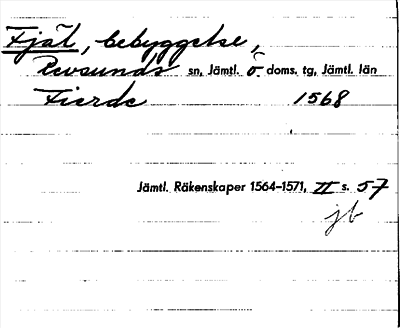 Fjäl, bebyggelse,
Revsunds sn, Jämtl. Ö. doms. tg, Jämtl. län
Fierde 1568
Jämtl. Räkenskaper 1564-1571, II s. 57
jb